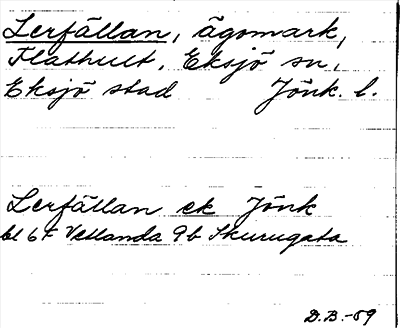 Lerfällan, ägomark,
Flathult, Eksjö sn,
Eksjö stad Jönk. l.
Lerfällan ek Jönk
bl 6F Vetlanda 9b Skurugata
D.B.-59